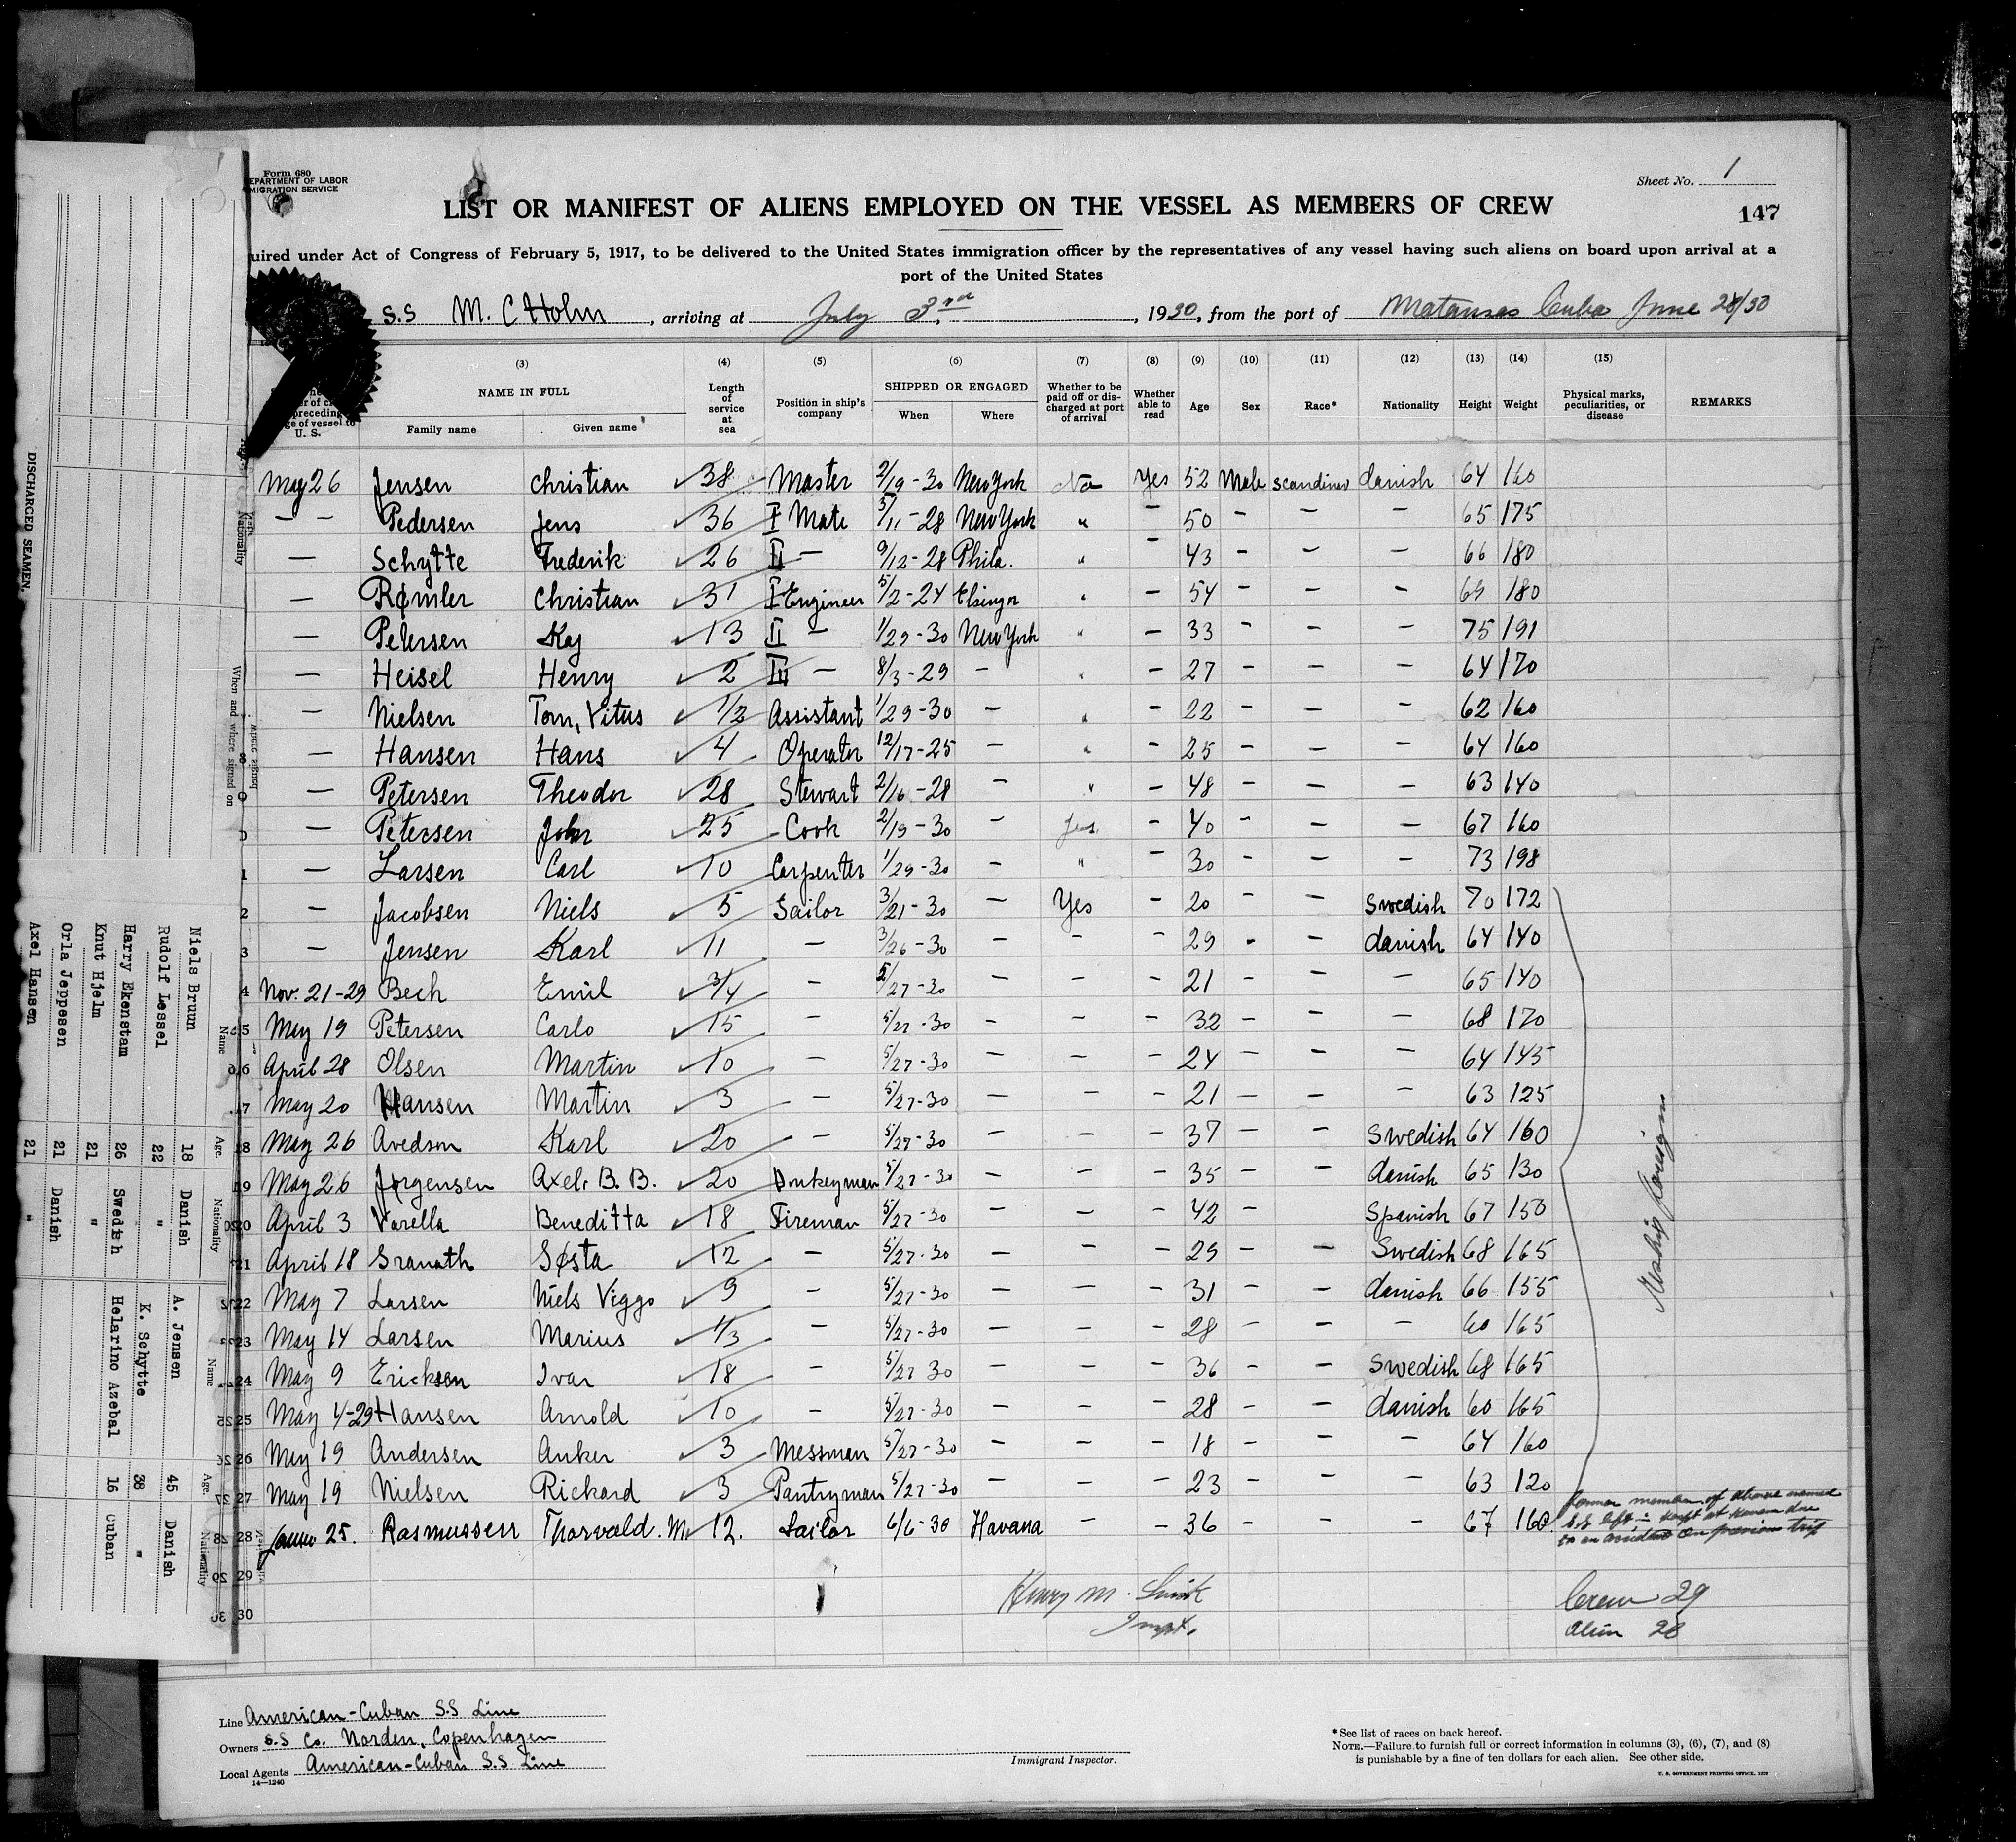 Form 680
EPARTMENT OF LABOR
MIGRATION SERVICE
Sheet No. 1
147
LIST OR MANIFEST OF ALIENS EMPLOYED ON THE VESSEL AS MEMBERS OF CREW
uired under Act of Congress of February 5, 1917, to be delivered to the United States immigration officer by the representatives of any vessel having such aliens on board upon arrival at a
port of the United States
S.S M. C Holm, arriving at July 3rd, 1930, from the port of Matansas Cuba June 28/30
(3) (4) (5) (6) (7) (8) (9) (10) (11) (12) (13) (14) (15)
NAME IN FULL Family name Given name Length of service at sea Position in ship's company SHIPPED OR ENGAGED When Where Whether to be paid off or discharged at port of arrival Whether able to read Age Sex Race* Nationality Height Weight Physical marks, peculiarities, or disease REMARKS
preceding
ge of vessel to
U. S.
May 26 Jensen Christian 38 Master 2/19-30 New York No Yes 52 Male scandinav danish 64 160
— — Pedersen Jens 36 I Mate 3/11-28 New York " — 50 — — — 65 175
— Schytte Frederik 26 II — 9/12-28 Phila. " — 43 — — — 66 180
— Rømler Christian 31 I Engineer 5/2-24 Elsingor " — 54 — — — 69 180
— Petersen Kaj 13 II — 1/29-30 New York " — 33 — — — 75 191
— Heisel Henry 2 III — 8/3-29 — " — 27 — — — 64 170
— Nielsen Tom, Vitus 1/2 Assistant 1/29-30 — " — 22 — — — 62 160
— Hansen Hans 4 Operator 12/17-25 — " — 25 — — — 64 160
— Petersen Theodor 28 Stewart 2/16-28 — " — 48 — — — 63 140
— Petersen John 25 Cook 2/19-30 — Yes — 40 — — — 67 160
— Larsen Carl 10 Carpenter 1/29-30 — " — 30 — — — 73 198
— Jacobsen Niels 5 Sailor 3/21-30 — Yes — 20 — — Swedish 70 172
— Jensen Karl 11 — 3/26-30 — — — 29 — — danish 64 140
Nov. 21-29 Bech Emil 3/4 — 5/27-30 — — — 21 — — — 65 140
May 19 Petersen Carlo 15 — 5/27-30 — — — 32 — — — 68 170
April 28 Olsen Martin 10 — 5/27-30 — — — 24 — — — 64 145
May 20 Hansen Martin 3 — 5/27-30 — — — 21 — — — 63 125
18 May 26 Avedson Karl 20 — 5/27-30 — — — 37 — — Swedish 64 160
19 May 26 Jørgensen Axel. B. B. 20 Donkeyman 5/27-30 — — — 35 — — danish 65 130
20 April 3 Varella Beneditta 18 Fireman 5/27-30 — — — 42 — — Spanish 67 150
21 April 18 Granath Gøsta 12 — 5/27-30 — — — 29 — — Swedish 68 165
22 May 7 Larsen Niels Viggo 9 — 5/27-30 — — — 31 — — danish 66 155
23 May 14 Larsen Marius 1/3 — 5/27-30 — — — 28 — — — 60 165
24 May 9 Ericksen Ivar 18 — 5/27 30 — — — 36 — — Swedish 68 165
25 May 4-29 Hansen Arnold 10 — 5/27-30 — — — 28 — — danish 60 165
26 May 19 Andersen Anker 3 Messman 5/27-30 — — — 18 — — — 64 160
27 May 19 Nielsen Rickard 3 Pantryman 5/27-30 — — — 23 — — — 63 120
28 25. Rasmussen Thorvald. M. 12. Sailor 6/6-30 Havana — — 36 — — — 67 160
Reship foreign
former member of above named
S.S left
to an accident on previous trip
29
30
Henry M.
Inspt.
Crew 29
Alien 28
Line American-Cuban S.S Line
Owners S.S Co. Norden, Copenhagen
Local Agents American-Cuban S.S Line
14—1240
Immigrant Inspector.
*See list of races on back hereof.
NOTE.—Failure to furnish full or correct information in columns (3), (6), (7), and (8)
is punishable by a fine of ten dollars for each alien. See other side.
U. S. GOVERNMENT PRINTING OFFICE, 1929
DISCHARGED SEAMEN.
Nationality
When and where signed on
Name Age. Nationality
Niels Bruun 18 Danish
Rudolf Lessel 22 "
Harry Ekenstam 26 Swedish
Knut Hjelm 21 "
Orla Jeppesen 21 Danish
Axel Hansen 21 "
Name Age. Nationality
A. Jensen 45 Danish
K. Schytte 38 "
Helarino Azebal 16 Cuban